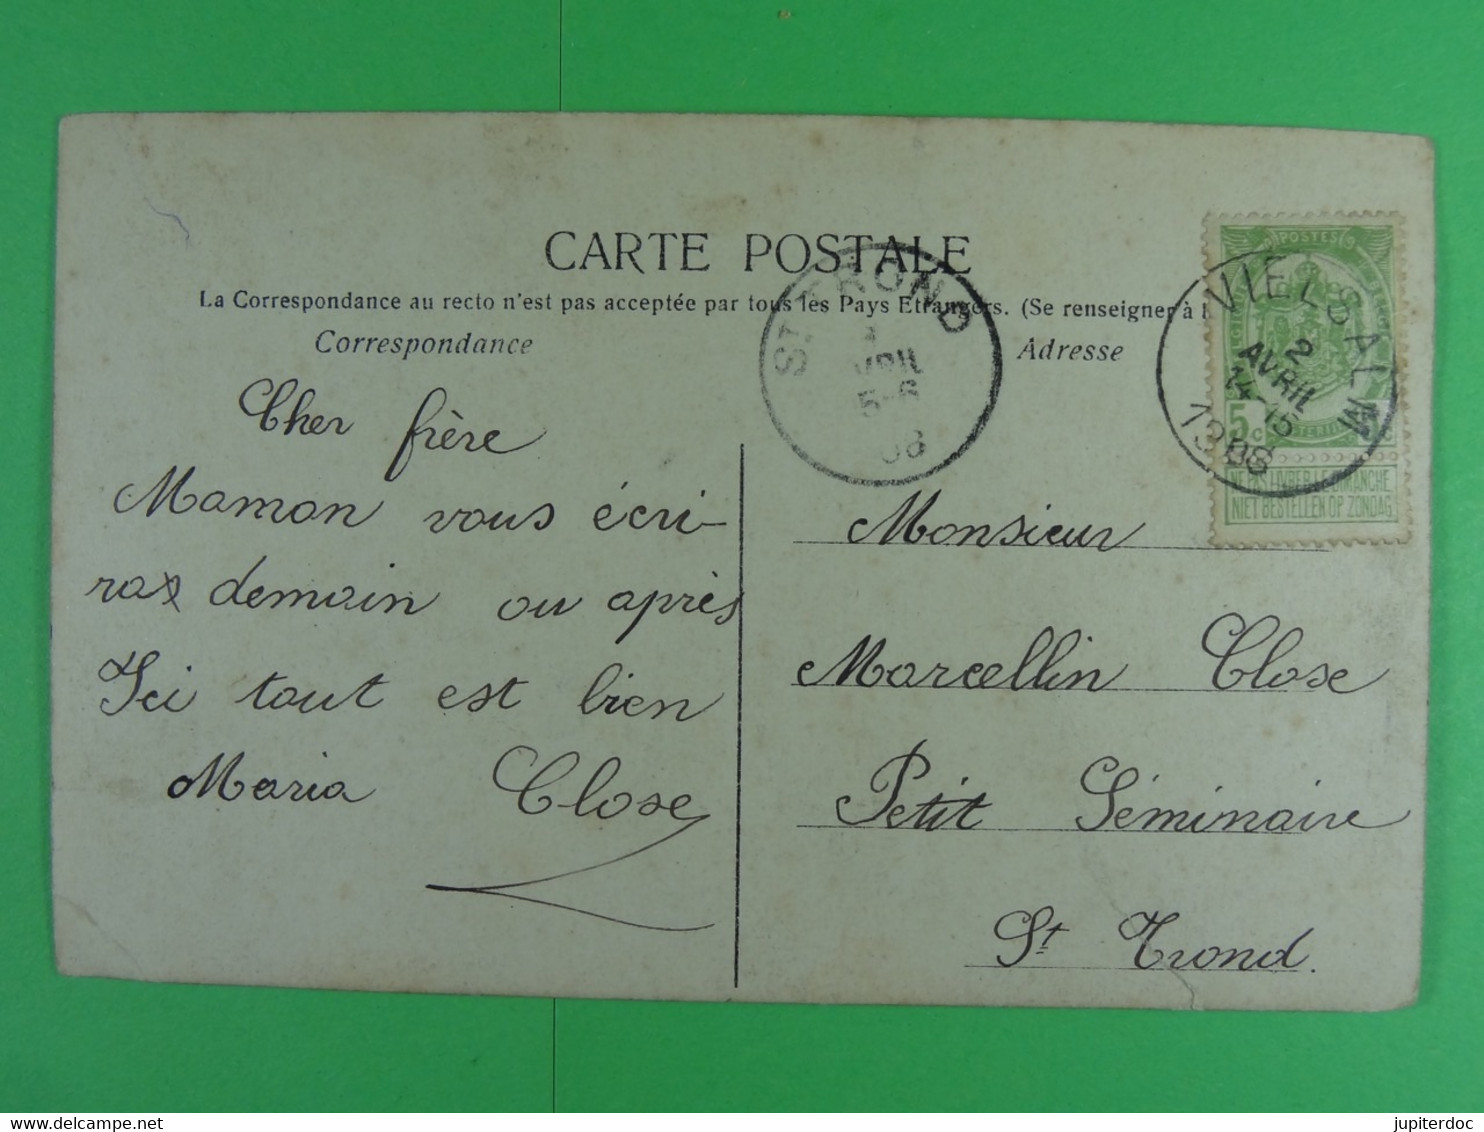 CARTE POSTALE
La Correspondance au recto n'est pas acceptée par tous les Pays Etrangers. (Se renseigner à
Correspondance
Adresse
Cher frère
Maman vous écri-
ra demain ou après
Ici tout est bien
Maria Close
Monsieur
Marcellin Close
Petit Séminaire
St Trond.
ST TROND
AVRIL
5-6
08
VIELSALM
2
AVRIL
14-15
1908
POSTES
5 c
NE PAS LIVRER LE DIMANCHE
NIET BESTELLEN OP ZONDAG
delcampe.net
jupiterdoc